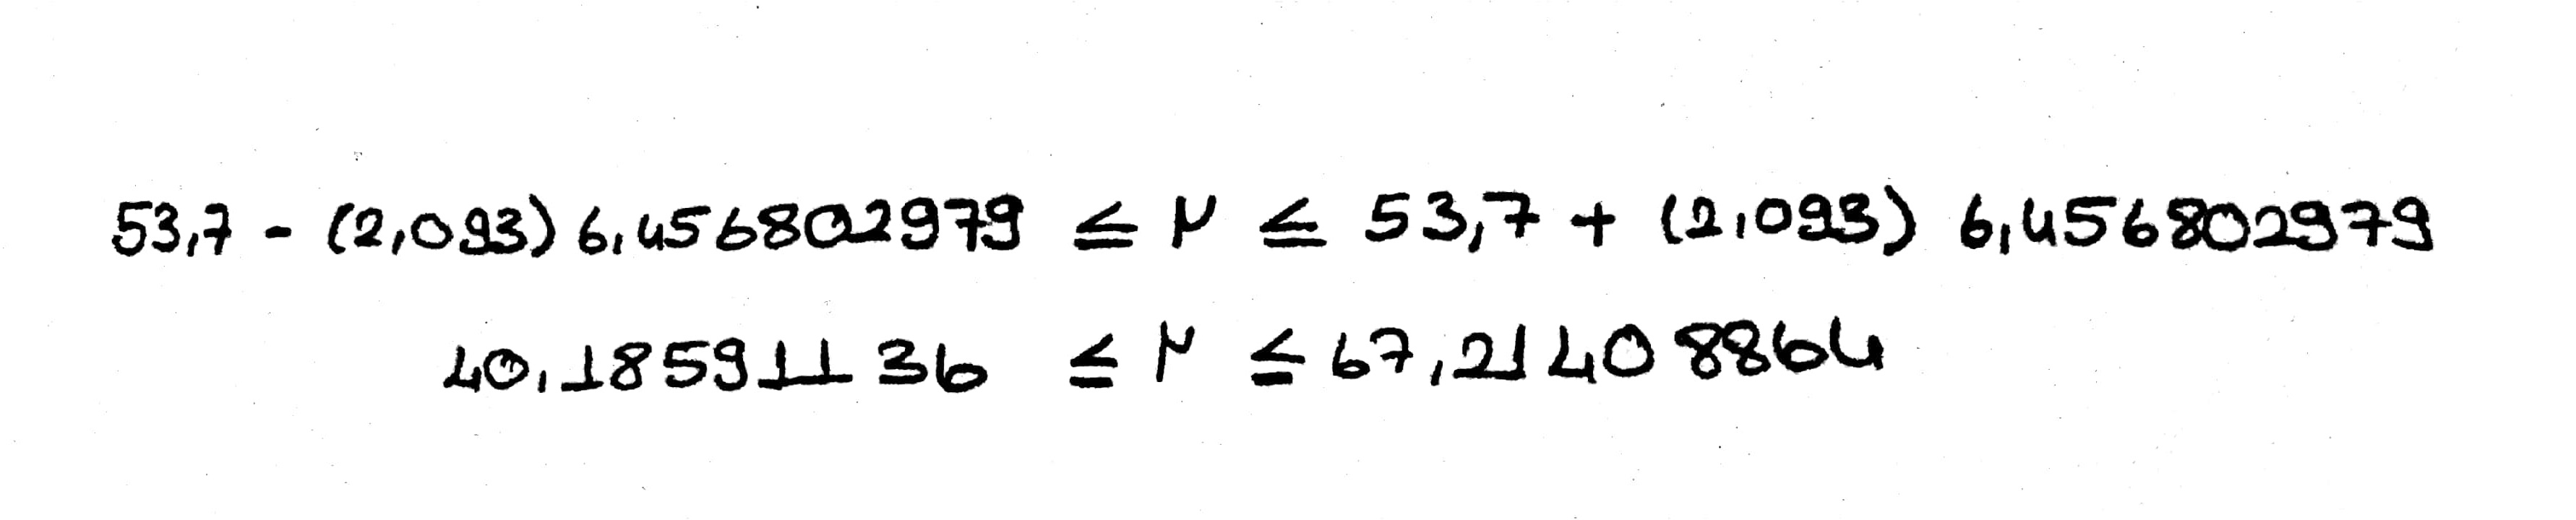 53,7 - (2,093) 6,456802979 ≤ μ ≤ 53,7 + (2,093) 6,456802979
40,18591136 ≤ μ ≤ 67,21408864